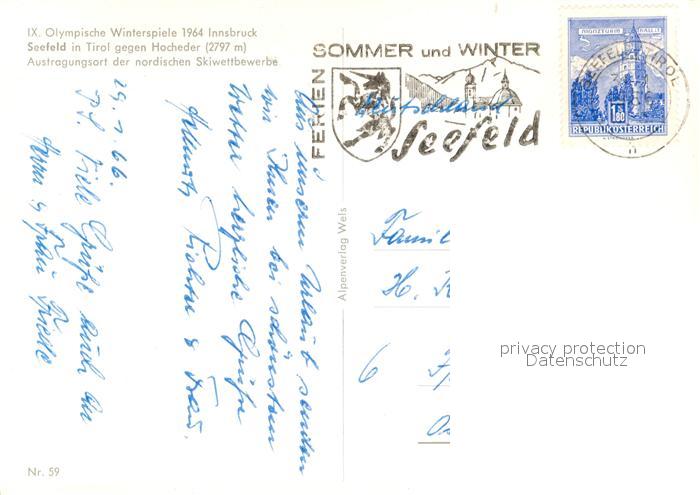 IX. Olympische Winterspiele 1964 Innsbruck
Seefeld in Tirol gegen Hocheder (2797 m)
Austragungsort der nordischen Skiwettbewerbe
FERIEN SOMMER und WINTER
Seefeld
Deutschland
MÜNZTURM HALL i. T.
SEEFELD TIROL
1.80
REPUBLIK ÖSTERREICH
Aus unserm Urlaub senden
wir Ihnen bei schönstem
Wetter herzliche Grüße
Richter u Frau.
29. 1. 66.
P.S. Viele Grüße auch an
Herrn u Frau
Alpenverlag Wels
Famil
H.
6
privacy protection
Datenschutz
Nr. 59